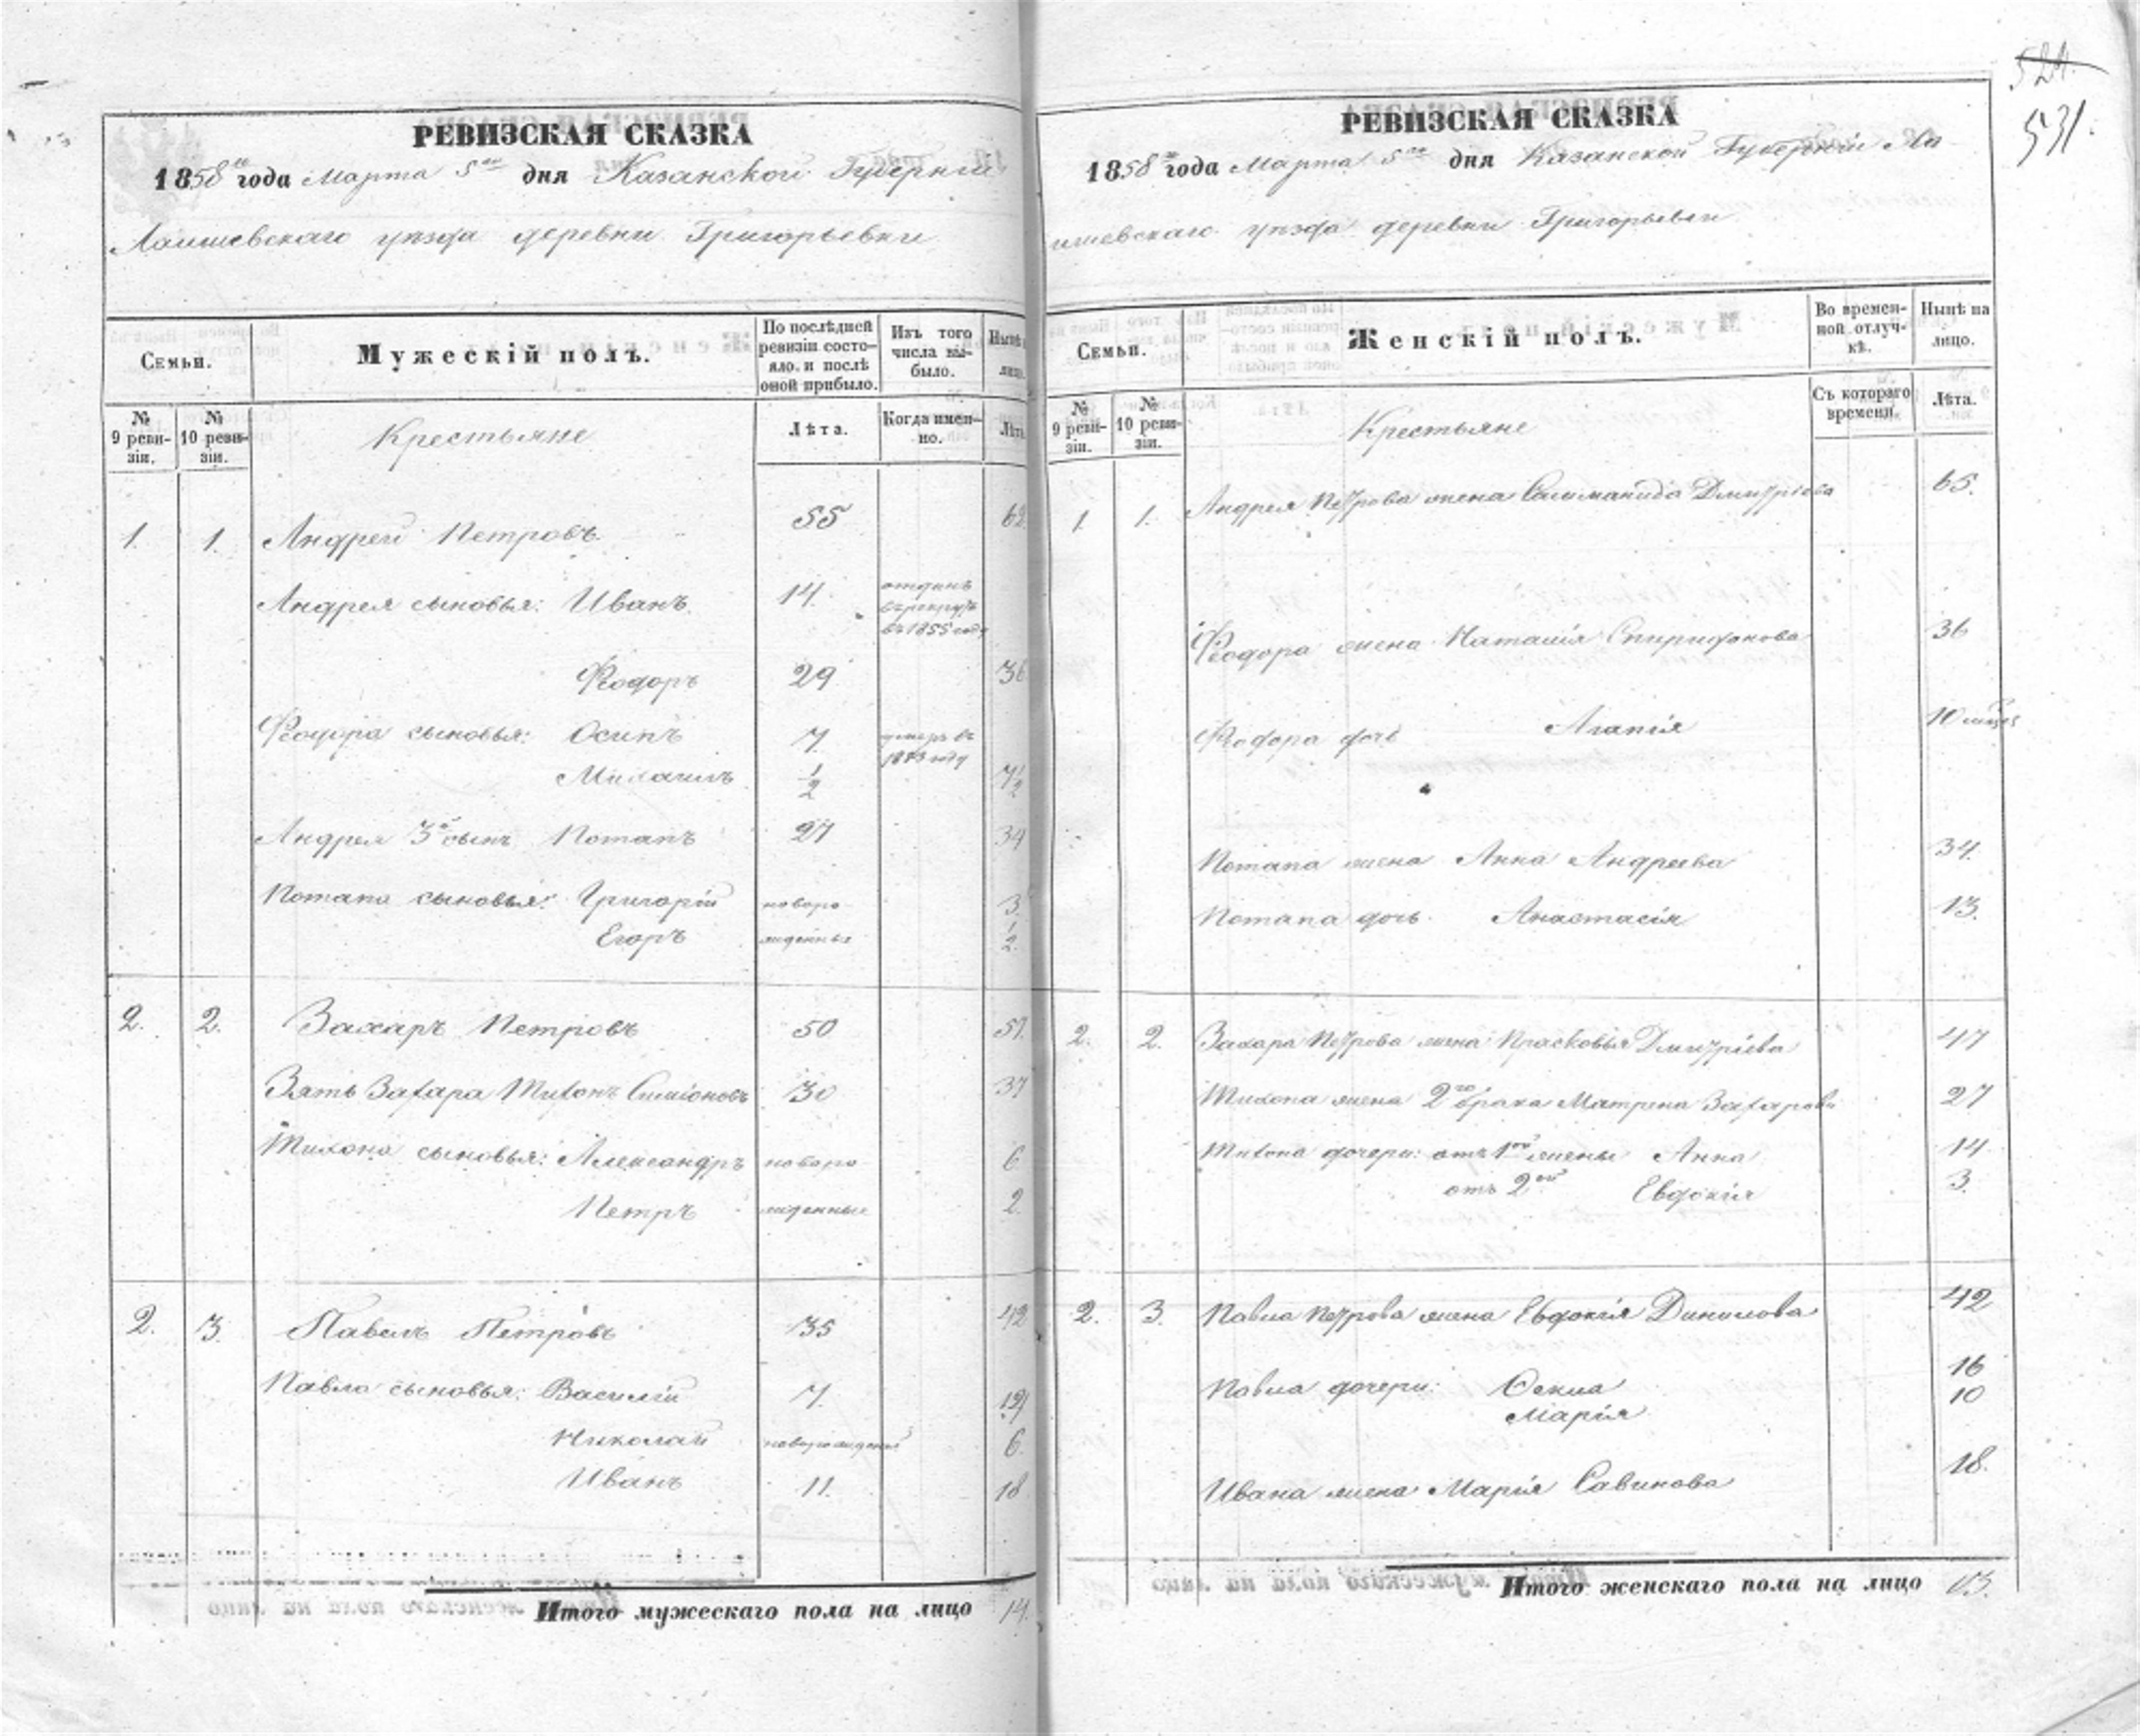 524.
531.
РЕВИЗСКАЯ СКАЗКА
1858го года Марта 5го дня Казанской Губерніи
Лаишевскаго уѣзда деревни Григорьевки
Семьи.
Мужескій полъ.
По послѣдней ревизіи состо-
яло. и послѣ
оной прибыло.
Изъ того
числа вы-
было.
Нынѣ
лицо
№
9 реви-
зіи.
№
10 реви-
зіи.
Крестьяне
Лѣта.
Когда имен-
но.
Лѣта
1. 1. Андрей Петровъ 55 62
Андрея сыновья: Иванъ 14. отданъ
въ рекруты
въ 1855 году
Ѳеодоръ 29 36
Ѳеодора сыновья: Осипъ 7. умеръ въ
году
Михаилъ 1/2 7 1/2
Андрея 3й сынъ Потапъ 27 34
Потапа сыновья: Григорій новоро- 3.
Егоръ жденные 1/2.
2. 2. Захаръ Петровъ 50 57.
Зять Захара Тихонъ Симіоновъ 30 37
Тихона сыновья: Александръ новоро- 6
Петръ жденные 2.
2. 3. Павелъ Петровъ 35 42
Павла сыновья: Василій 7.
Николай новорожденный 6.
Иванъ 11. 18
Итого мужескаго пола на лицо 14.
РЕВИЗСКАЯ СКАЗКА
1858го года Марта 5го дня Казанской Губерніи Ла
ишевскаго уѣзда деревни Григорьевки
Семьи.
Женскій полъ.
Во времен-
ной отлуч-
кѣ.
Нынѣ на
лицо.
№
9 реви-
зіи.
№
10 реви-
зіи.
Крестьяне
Съ котораго
времени.
Лѣта.
1. 1. Андрея Петрова жена Дмитріева 65.
Ѳеодора жена Наталія Спиридонова 36
Ѳеодора дочь Агапія 10
Потапа жена Анна Андреева 34.
Потапа дочь Анастасія 13.
2. 2. Захара Петрова жена Прасковья Дмитріева 47
Тихона жена 2го брака Матрена Захарова 27
Тихона дочери: отъ 1ой жены Анна 14
отъ 2ой Евдокія 3.
2. 3. Павла Петрова жена Евдокія Данилова 42
Павла дочери: Ѳекла 16
Марія 10
Ивана жена Марія Савинова 18.
Итого женскаго пола на лицо 13.